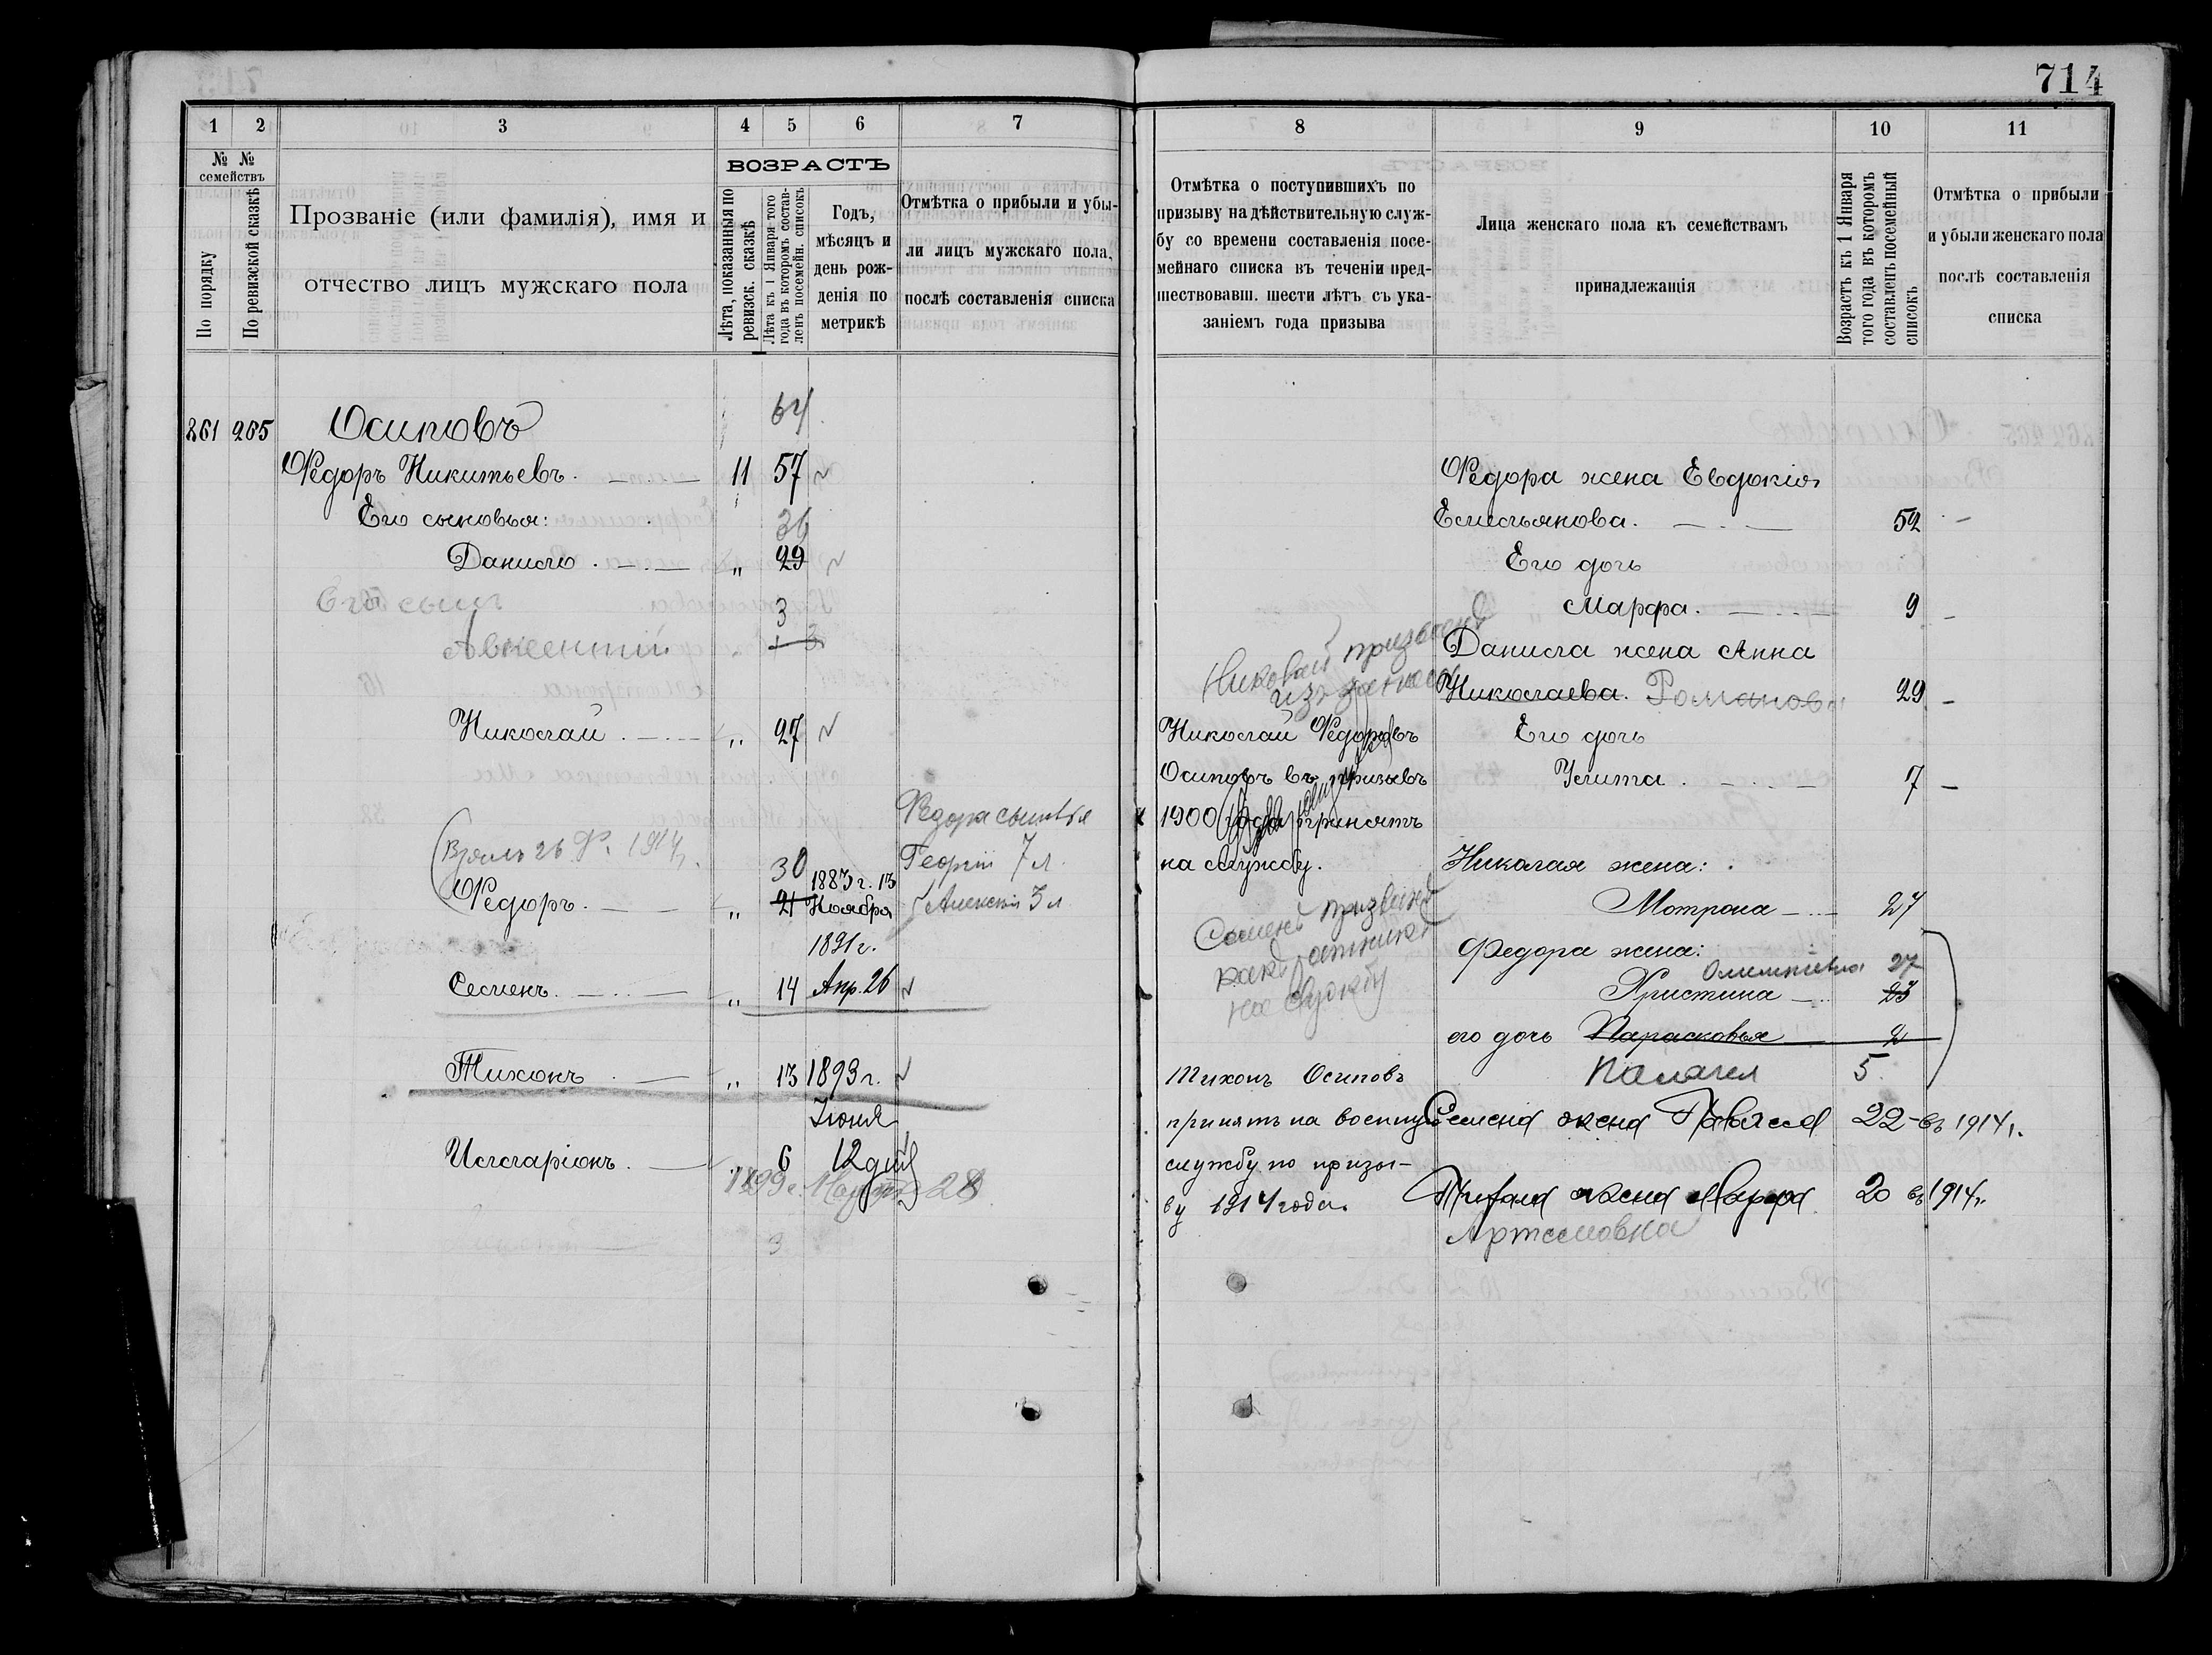 714
1 2 3 4 5 6 7
№ № семействъ
По порядку
По ревизской сказкѣ
Прозваніе (или фамилія), имя и
отчество лицъ мужскаго пола
ВОЗРАСТЪ
Лѣта, показанныя по
ревизск. сказкѣ
Лѣта къ 1 Января того
года въ которомъ состав-
ленъ посемейн. списокъ
Годъ,
мѣсяцъ и
день рож-
денія по
метрикѣ
Отмѣтка о прибыли и убы-
ли лицъ мужскаго пола,
послѣ составленія списка
64
261 265 Осиповъ
Ѳедоръ Никитьевъ. 11 57
Его сыновья: 36
Данило. „ 29
Его сынъ 3
Авксентій 1 3
Николай. „ 27
Ѳедора сыновья
26 1914 г.
30 1883 г. 13 Георгій 7 л.
Ѳедоръ. „ 21 Ноября Алексій 3 л
1891 г.
Семенъ. „ 14 Апр. 26
Тихонъ „ 13 1893 г.
Іюня
Илларіонъ. „ 6 12 дня
1899 г. Марта 28
3
8 9 10 11
Отмѣтка о поступившихъ по
призыву на дѣйствительную служ-
бу со времени составленія посе-
мейнаго списка въ теченіи пред-
шествовавш. шести лѣтъ съ ука-
заніемъ года призыва
Лица женскаго пола къ семействамъ
принадлежащія
Возрастъ къ 1 Января
того года въ которомъ
составленъ посемейный
списокъ
Отмѣтка о прибыли
и убыли женскаго пола
послѣ составленія
списка
Ѳедора жена Евдокія
Емельянова. 52
Его дочь
Марфа. 9
Данила жена Анна
Николай призванъ
изъ запаса
Николаева. Романова 29
Николай Ѳедоровъ Его дочь
Осиповъ въ призывъ Улита. 7
1900 года принятъ
на службу. Николая жена:
Семенъ призванъ Мотрона 27
какъ ратникъ
на службу
Федора жена:
27
Христина 23
его дочь Парасковья 2
Палагея 5
Тихонъ Осиповъ
принятъ на военную Семена жена 22 въ 1914 г.
службу по призы-
ву 1914 года. Тихона жена Марфа 20 въ 1914 г.
Артемовна